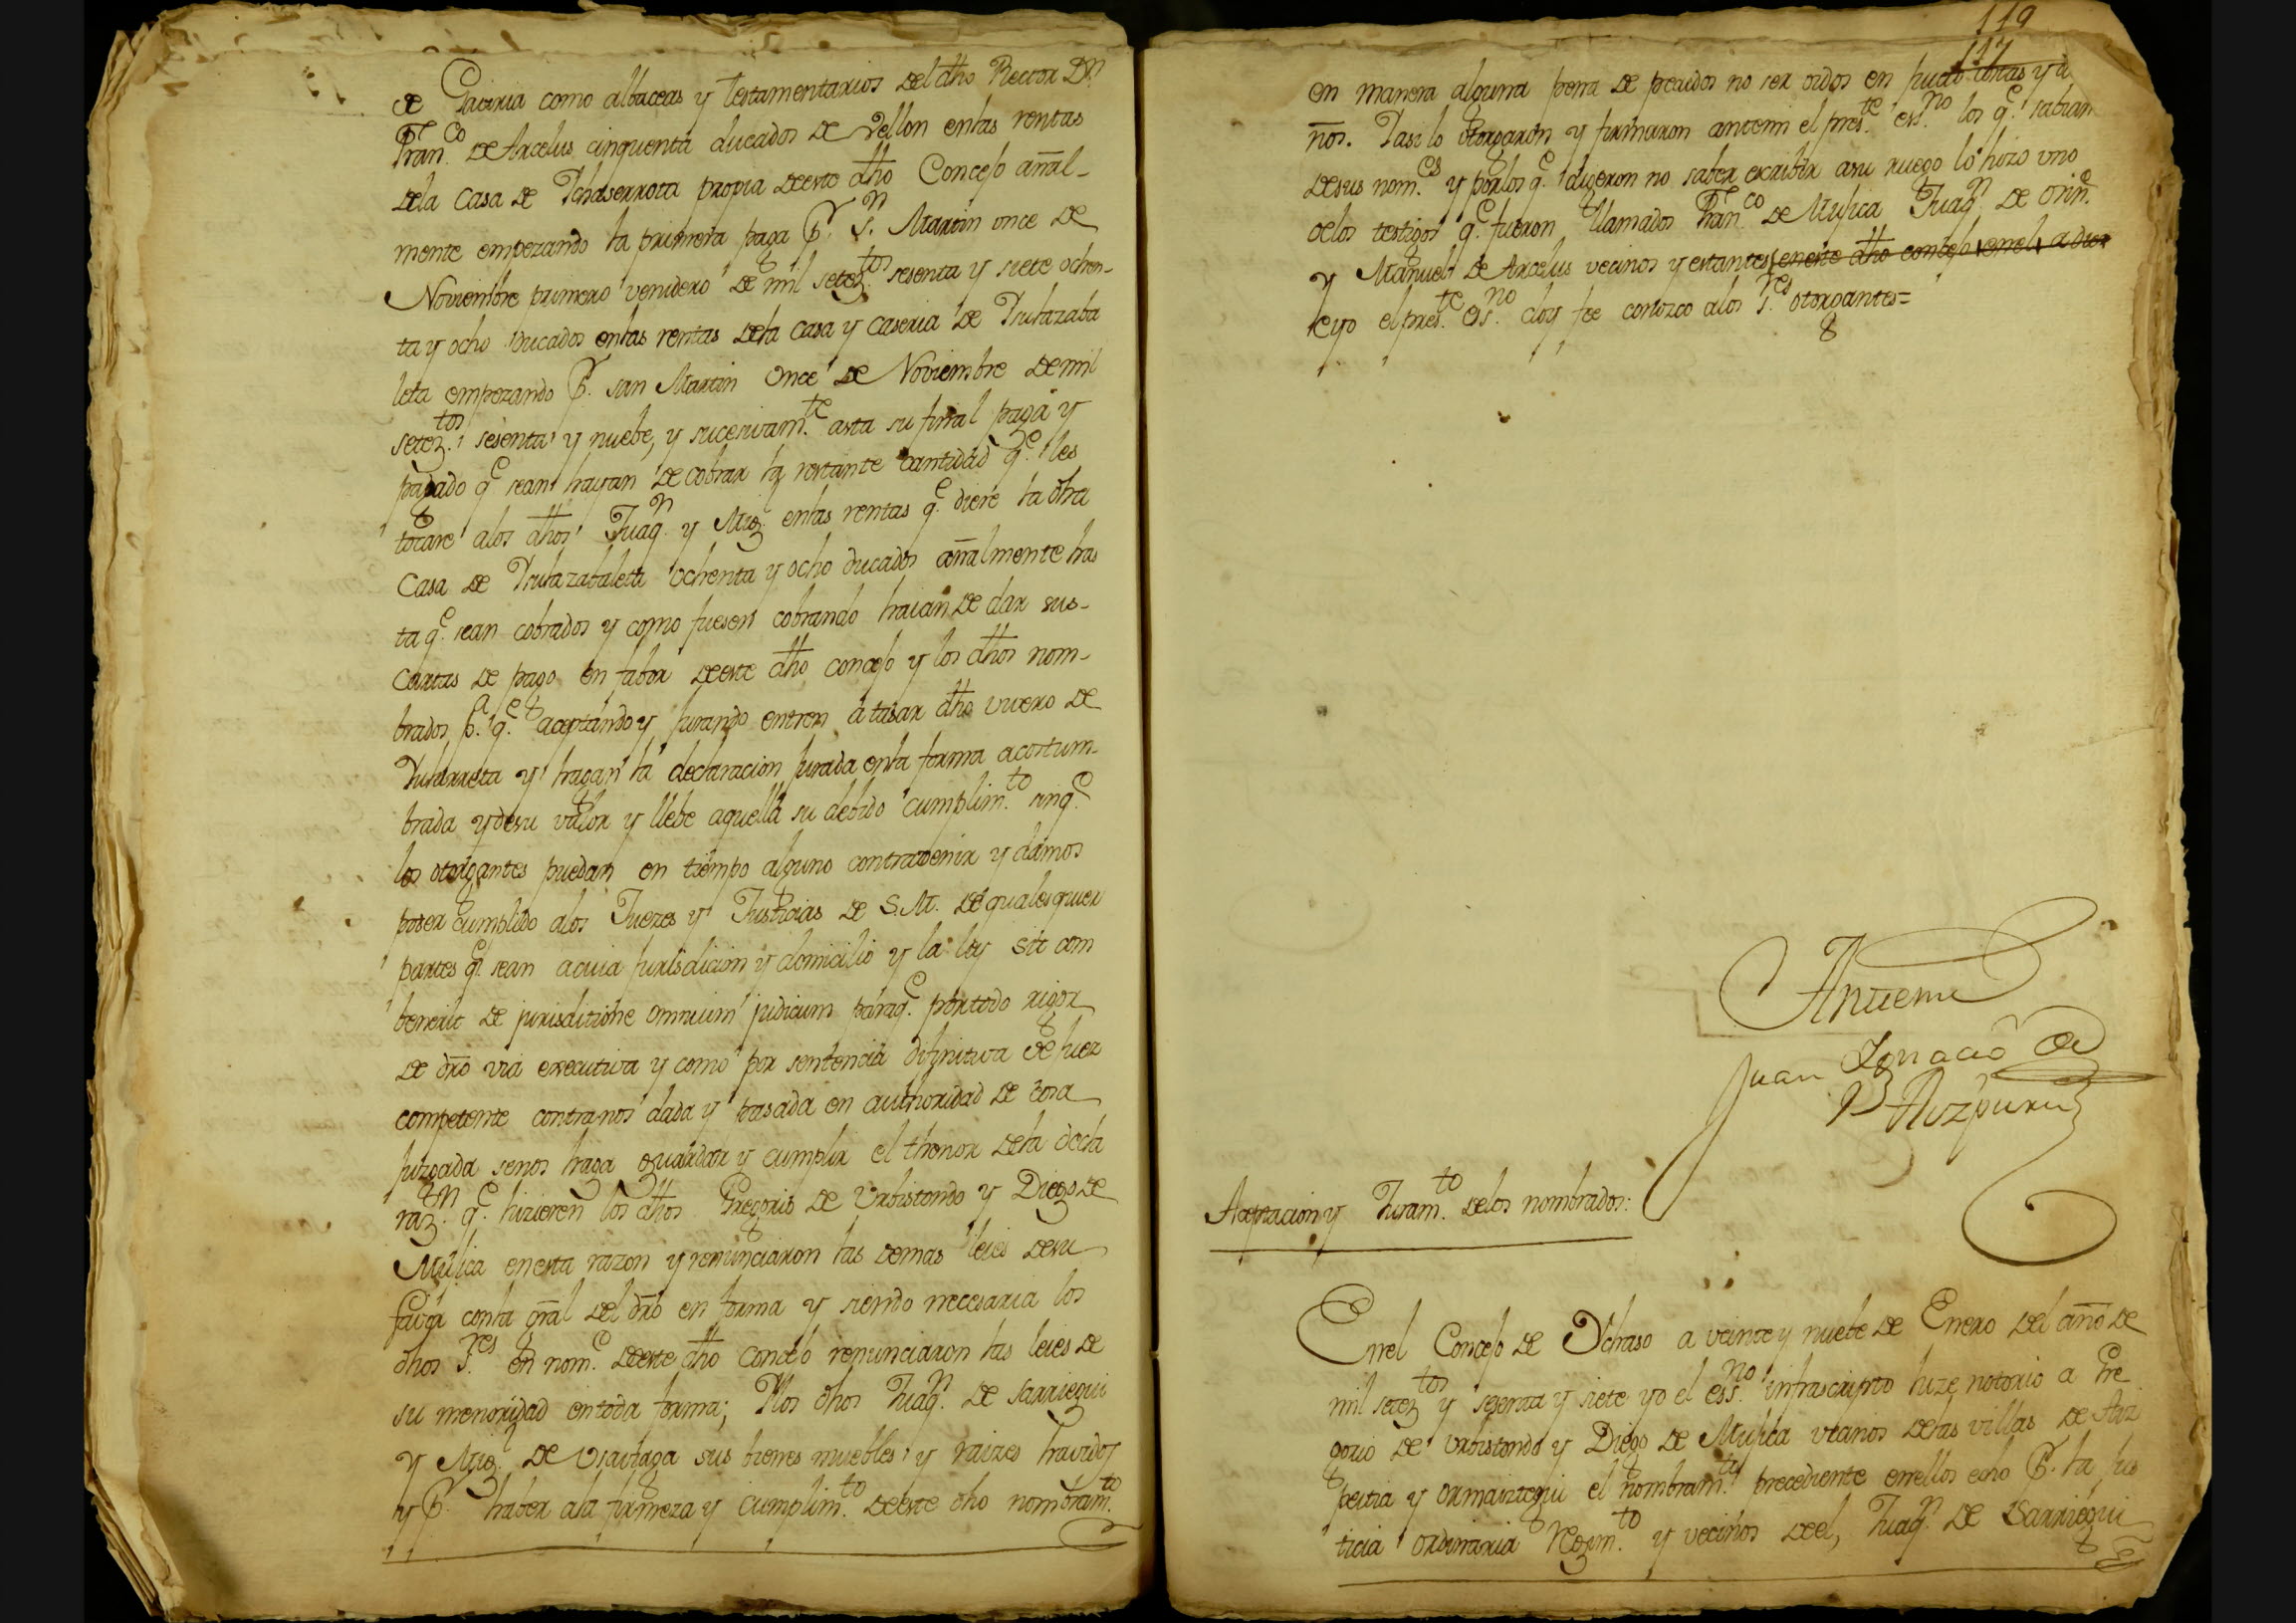 de Gaviria como albaceas y testamentarios del dho Rector Dn
Franco. de Arcelus cinquenta ducados de Vellon enlas rentas
dela Casa de Ychaserrota propia deeste dho Concejo añal-
mente empezando la primera paga Pr. Sn. Martin once de
Noviembre primero venidero de mil seteztos. sesenta y siete ochen-
ta y ocho Ducados enlas rentas dela Casa y Caseria de Ynurazaba
leta empezando Pr. san Martin Once de Noviembre de mil
seteztos. sesenta y nuebe, y sucesivamte. asta su final paga y
pagado qe sean hayan de cobrar la restante cantidad qe. les
tocare alos dhos Juaqn. y Miĝ. enlas rentas qe. diere la dha
Casa de Ynurazabaleta ochenta y ocho ducados añalmente has
ta qe. sean cobrados y como fuesen cobrando haian de dar sus-
Cartas de pago en fabor deeste dho concejo y los dhos nom-
brados pa. qe. aceptando y Jurando entren a tasar dho vivero de
Ynurrieta y hagan la declaracion Jurada enla forma acostum-
brada y desu valor y llebe aquella su debido cumplimto. sinqe.
los otorgantes puedan en tiempo alguno contravenir y damos
poder cumplido alos Juezes y Justicias de S.M. de qualesquier
partes qe. sean acuia Jurisdicion y domicilio y la ley sit com
benerit de jurisditione omnium judicum paraqe. portodo rigor
de dro via executiva y como por sentencia difinitiva de Juez
competente contra nos dada y pasada en authoridad de cosa
Juzgada senos haga guardar y cumplir el thenor dela decla
razn. qe. hizieren los dhos Gregorio de Urbistondo y Diego de
Mujica enesta razon y renunciaron las demas leies desu
favor conla gral del dro en forma y siendo necesaria los
dhos Sres. en nome. deeste dho Concejo renunciaron las leies de
su menoridad en toda forma; Ylos dhos Juaqn. de Sarriegui
y Migl. de Usabiaga sus bienes muebles y raizes havidos
y Pr. haber ala firmeza y cumplimto. deeste dho nombramto.
119
117
en manera alguna pena de perdidos no ser oidos en
nos. Yasi lo otorgaron y firmaron antemi el preste. essno. los qe. sabian
desus nomes. y porlos qe. digeron no saber escribir asu ruego lo hizo uno
delos testigos qe. fueron llamados Franco. de Mujica Juaqn. de
y Manuel de Arcelus vecinos y estantes eneste dho concejo
eyo el preste. essno. doy fee conozco alos Sres. otorgantes=
Antemi
Juan Ignacio de
Aizpuru
Aceptacion y Juramto. delos nombrados:
Enel Concejo de Ychaso a veinte y nuebe de Enero del año de
mil seteztos y sesenta y siete yo el essno. infrascripto hize notorio a Gre
gorio de Urbistondo y Diego de Mujica vecinos delas villas de Azp
peitia y Ormaiztegui el nombramto. precediente enellos echo Pr. la Jus
ticia Ordinaria Regimto. y vecinos deel, Juaqn. de Sarriegui